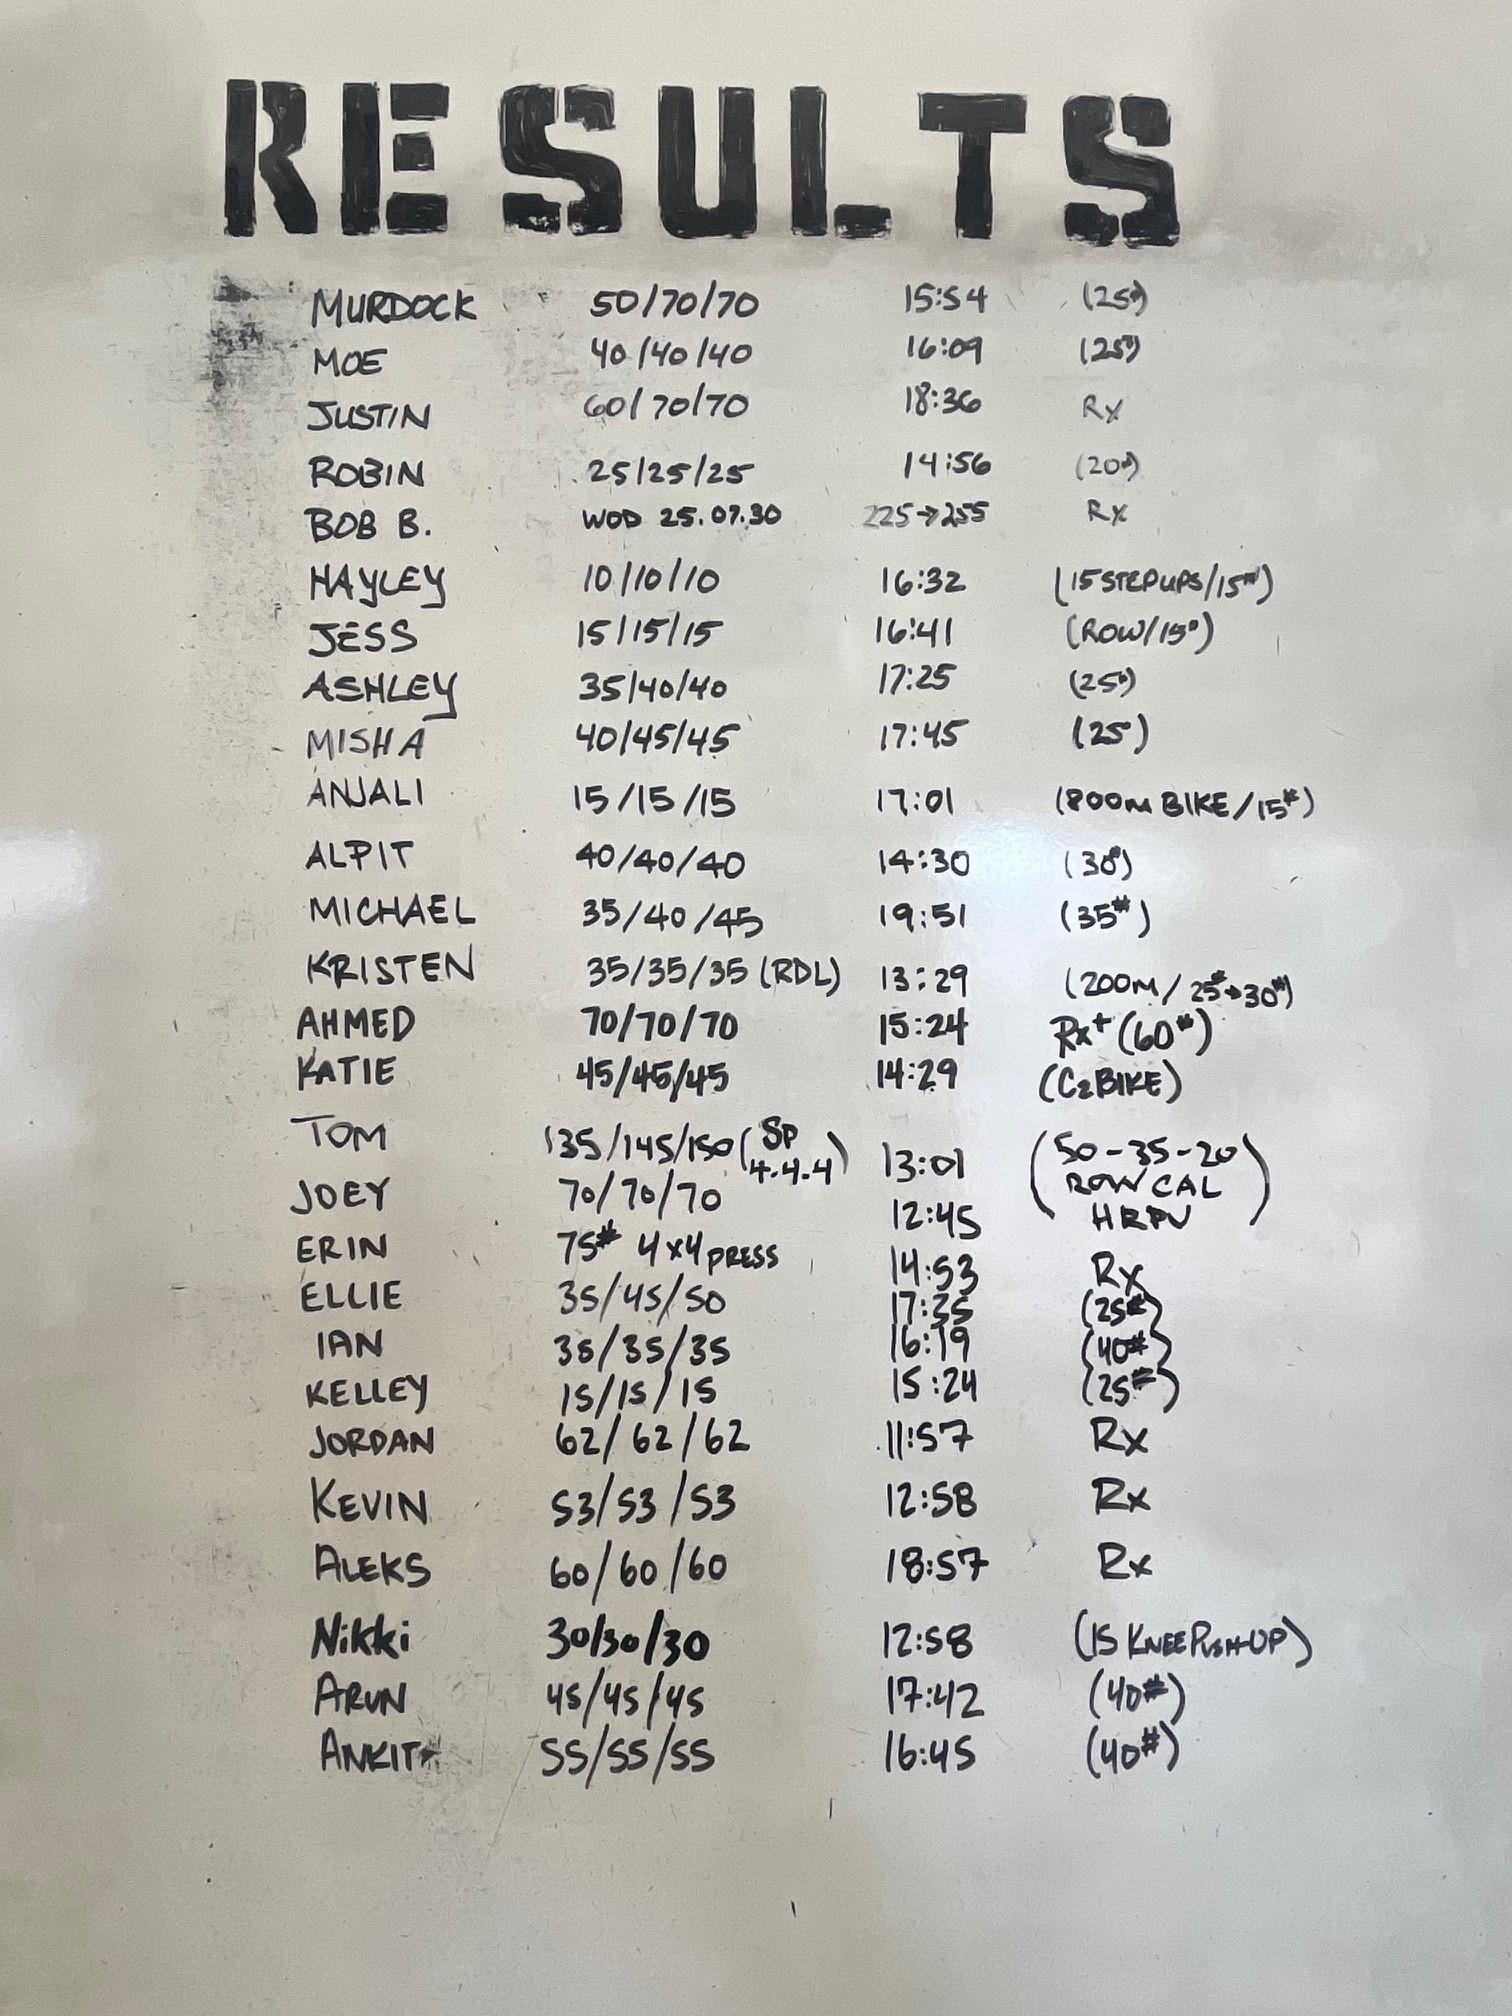 RESULTS
MURDOCK 50/70/70 15:54 (25#)
MOE 40/40/40 16:09 (25#)
JUSTIN 60/70/70 18:36 Rx
ROBIN 25/25/25 14:56 (20#)
BOB B. WOD 25.07.30 225→255 Rx
HAYLEY 10/10/10 16:32 (15 STEP UPS/15#)
JESS 15/15/15 16:41 (ROW/15#)
ASHLEY 35/40/40 17:25 (25#)
MISHA 40/45/45 17:45 (25)
ANJALI 15/15/15 17:01 (800m BIKE/15#)
ALPIT 40/40/40 14:30 (30#)
MICHAEL 35/40/45 19:51 (35#)
KRISTEN 35/35/35 (RDL) 13:29 (200M/25#→30#)
AHMED 70/70/70 15:24 Rx+ (60#)
KATIE 45/45/45 14:29 (C2 BIKE)
TOM 135/145/150 (SP 4.4.4) 13:01 (50-35-20 ROW CAL HRPU)
JOEY 70/70/70 12:45
ERIN 75# 4x4 PRESS 14:53 Rx
ELLIE 35/45/50 17:35 (25#)
IAN 35/35/35 16:19 (40#)
KELLEY 15/15/15 15:24 (25#)
JORDAN 62/62/62 11:57 Rx
KEVIN 53/53/53 12:58 Rx
ALEKS 60/60/60 18:57 Rx
Nikki 30/30/30 12:58 (15 KNEE PUSH-UP)
ARUN 45/45/45 17:42 (40#)
ANKIT 55/55/55 16:45 (40#)